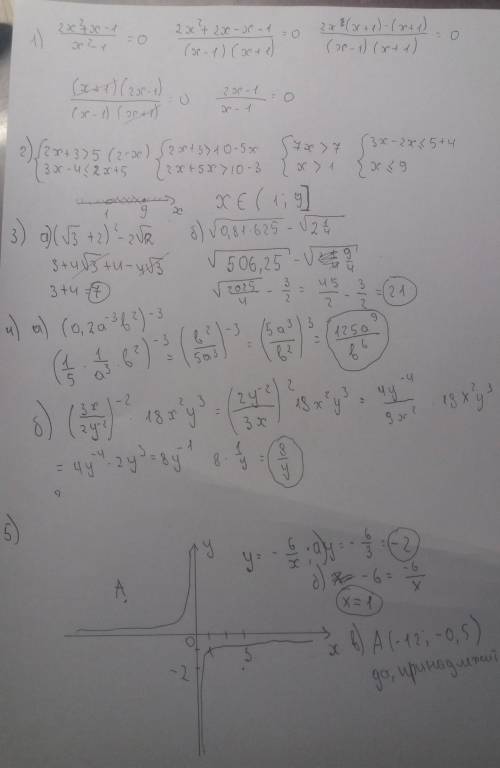 1) (2x²+x-1)/(x²-1) = 0 (2x²+2x-x-1)/((x-1)(x+1)) = 0 (2x(x+1)-(x+1))/((x-1)(x+1)) = 0
((x+1)(2x-1))/((x-1)(x+1)) = 0 (2x-1)/(x-1) = 0
2) {2x+3>5(2-x) {2x+3>10-5x {7x>7 {3x-2x≤5+4
3x-4≤2x+5 2x+5x>10-3 x>1 x≤9
1 9 x x∈(1; 9]
3) а) (√3+2)²-2√12 б) √0,81·625 - √2 1/4
3+4√3+4-4√3 √506,25 - √9/4
3+4=7 √2025/4 - 3/2 = 45/2 - 3/2 = 21
4) а) (0,2a⁻³b²)⁻³
(1/5 · 1/a³ · b²)⁻³ = (b²/5a³)⁻³ = (5a³/b²)³ = 125a⁹/b⁶
б) (3x/2y⁻²)⁻² · 18x²y³ = (2y⁻²/3x)² 18x²y³ = 4y⁻⁴/9x² · 18x²y³
= 4y⁻⁴·2y³=8y⁻¹ 8·1/y = 8/y
5)
y y = -6/x; а) y = -6/3 = -2
A б) -6 = -6/x
x=1
0 x в) A(-12; -0,5)
-2 3 да, принадлежит